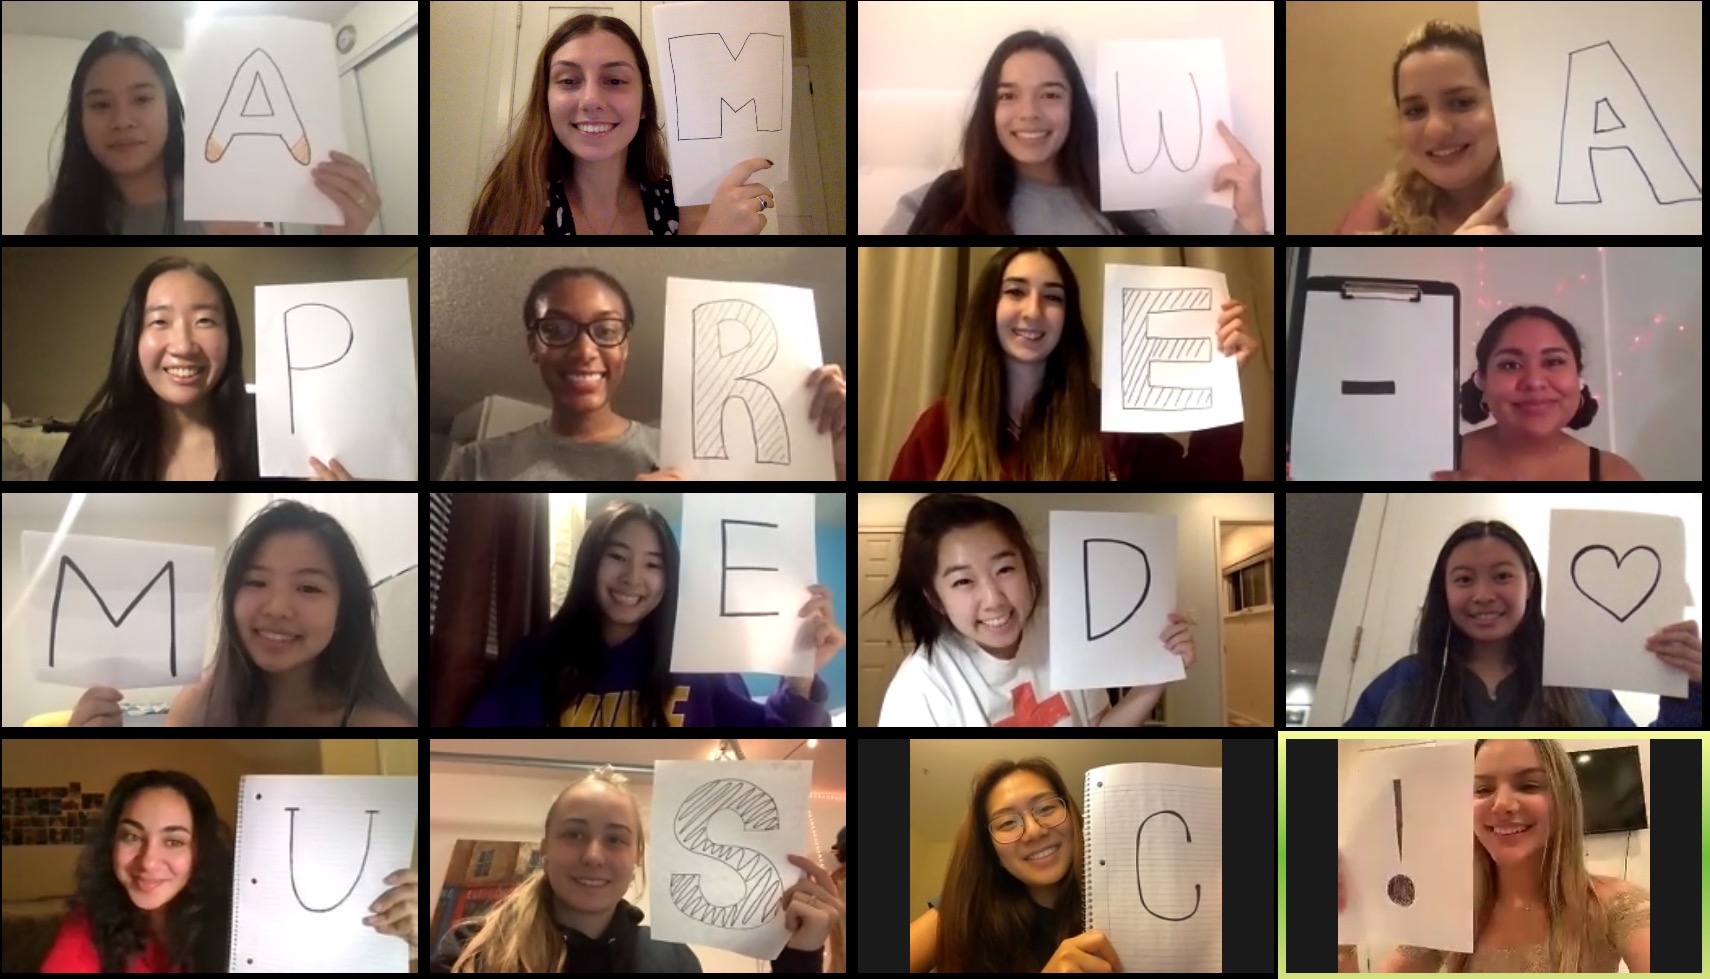 AMWA
PRE-
MED♡
USC!